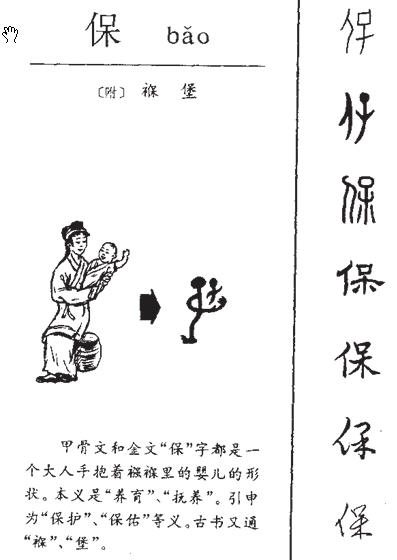 保 bǎo
〔附〕 褓 堡
甲骨文和金文“保”字都是一
个大人手抱着襁褓里的婴儿的形
状。本义是“养育”、“抚养”。引申
为“保护”、“保佑”等义。古书又通
“褓”、“堡”。
保
保
保
保
保
保
保